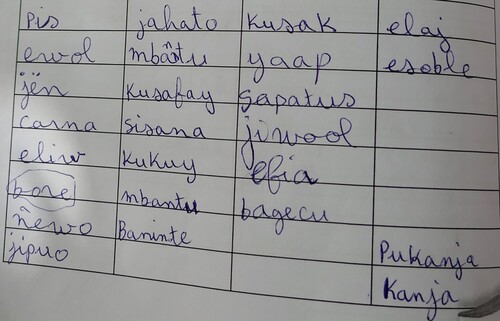 pis jahato kusak elaj
ewol mbâtu yaap esoble
jën kusafay sapatus
carna sisana jiwool
eliw kukuy efia
bore mbantu bagecu
ñewo Baninte Pukanja
jipuo Kanja